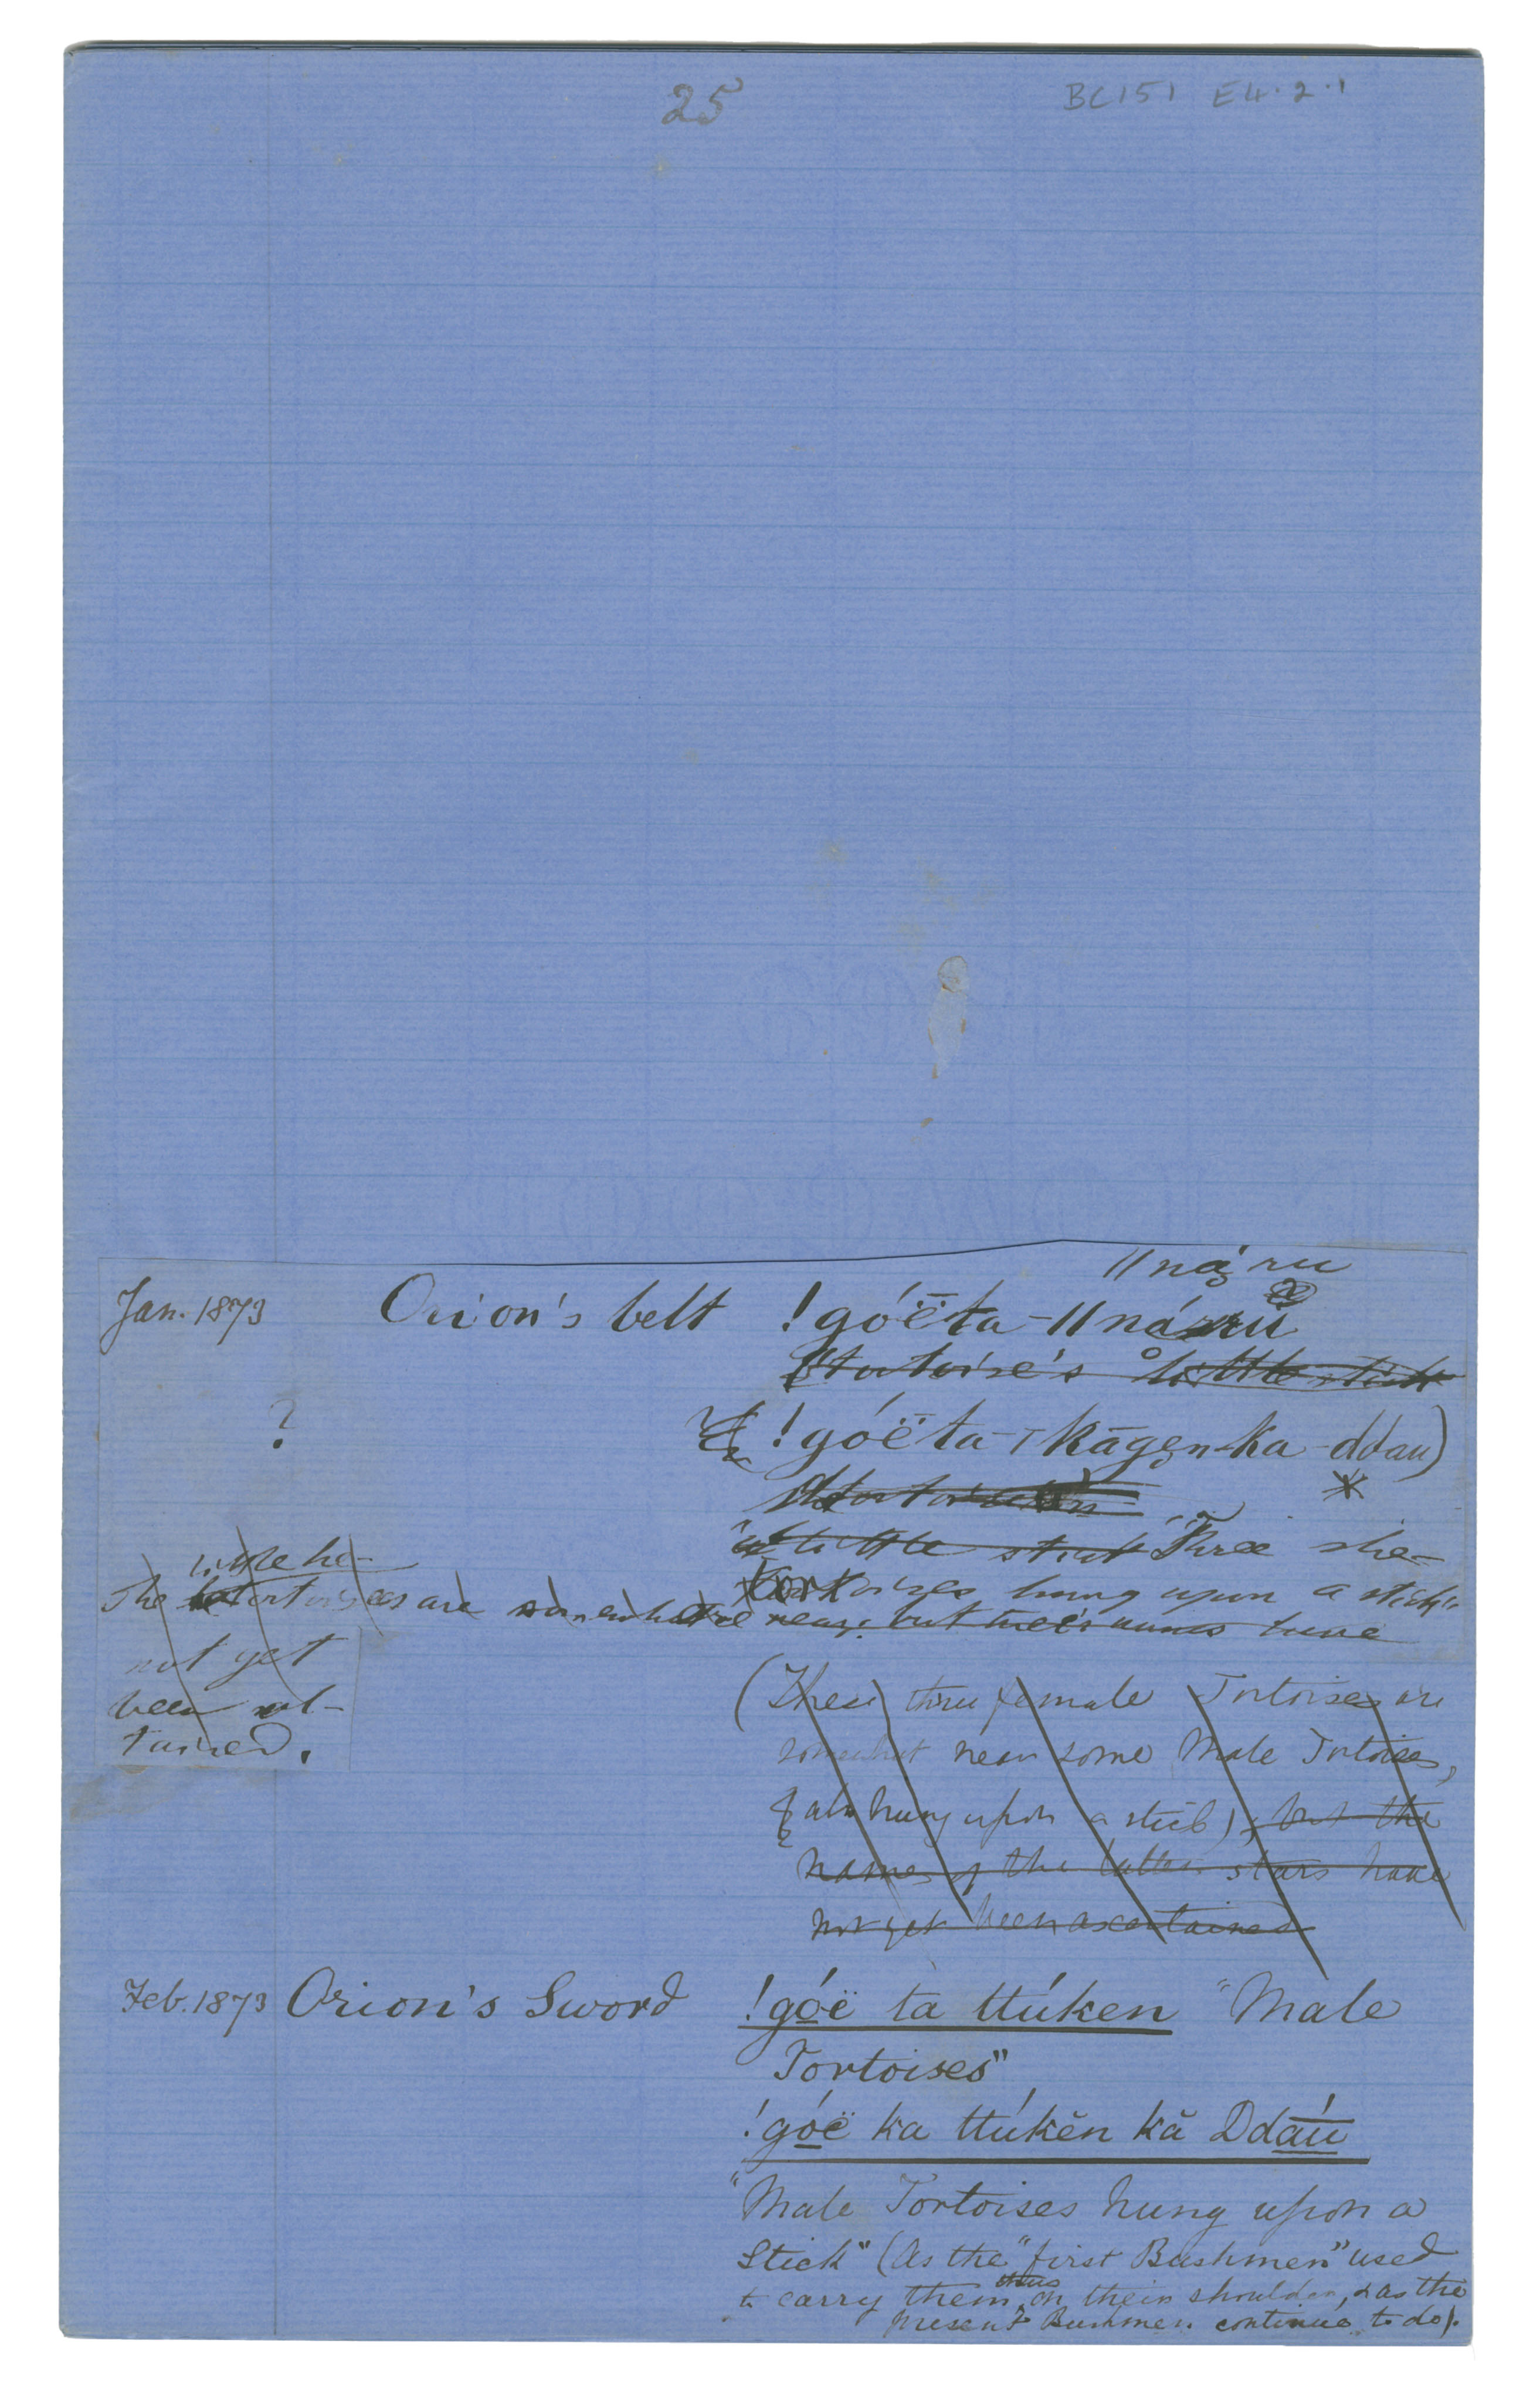 25
BC151 E4.2.1
Jan. 1873 Orion's belt !góë̄ta-ǁnáru
ǁná̧ru
tortoise's little stick
?
!góë̄ta-ǀkāge̦n-ka-ddau)
*
a little stick "Three she-
tortoises hung upon a stick"
little he-
The tortoises are somewhere near; but their names have
not yet
been ob-
tained.
(These three female Tortoises are
somewhat near some Male Tortoises,
(also hung upon a stick); but the
names of the latter stars have
not yet been ascertained
Feb. 1873 Orion's Sword !góë ta ttúken "Male
Tortoises"
!góë ka ttúkĕn kă Ddā́ū
"Male Tortoises hung upon a
Stick" (As the "first Bushmen" used
thus
to carry them on their shoulders, & as the
present Bushmen continue to do).